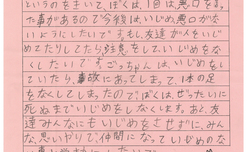 というのをきいて、ぼくは、1回は悪口を言っ
た事があるので今後は、いじめ、悪口がな
いようにしたいです。もし、友達が人をいじ
めてたりしてたら注意をしていじめをなく
したいです。ごっちゃんは、いじめをし
ていたら、事故にあってしまって、1本の足
をなくしてしまったのでぼくは、ぜったいに
死ぬまでいじめをしなくします。あと、友
達みんなにもいじめをさせずに、みん
な、思いやりで、仲間になっていじめのな